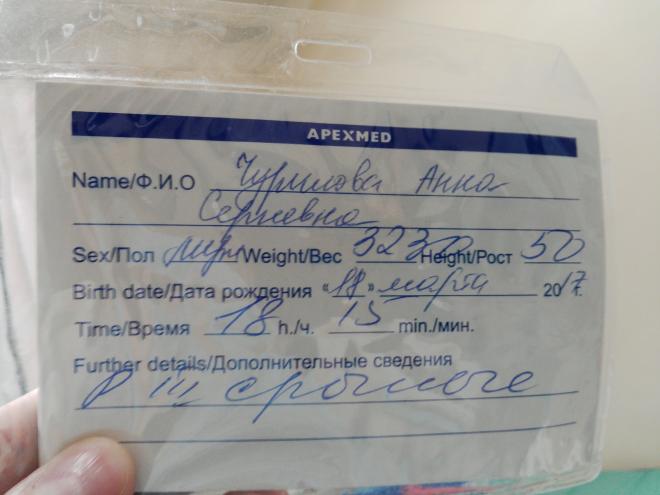 APEXMED
Name/Ф.И.О Чурилова Анна
Сергеевна
Sex/Пол муж Weight/Вес 3230 Height/Рост 50
Birth date/Дата рождения «18» марта 2017г.
Time/Время 18 h./ч. 15 min./мин.
Further details/Дополнительные сведения
Р III срочные